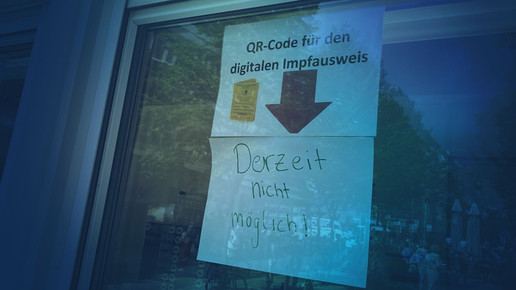 QR-Code für den
digitalen Impfausweis
Derzeit
nicht
möglich!